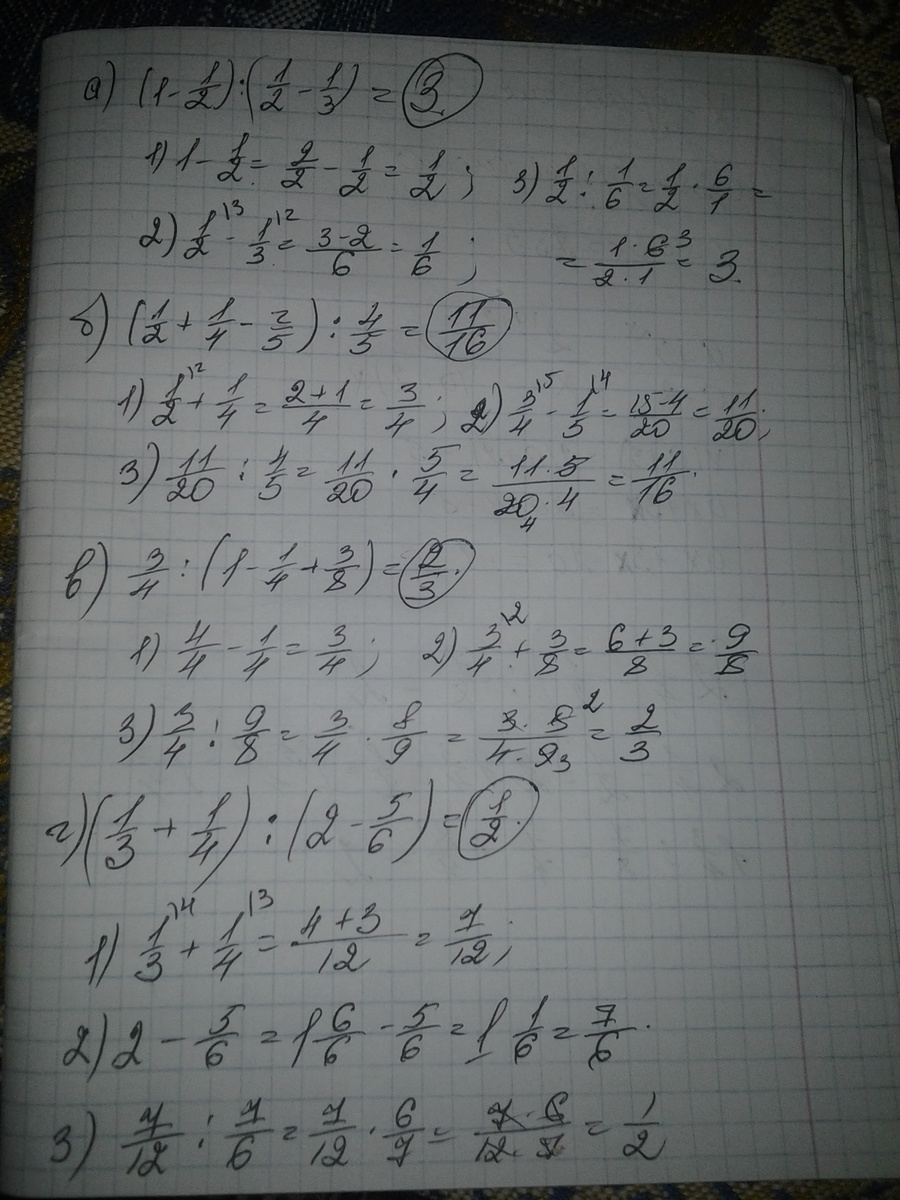 а) (1 - 1/2) : (1/2 - 1/3) = 3
1) 1 - 1/2 = 2/2 - 1/2 = 1/2 ; 3) 1/2 : 1/6 = 1/2 · 6/1 =
2) 1/2\3 - 1/3\2 = 3-2/6 = 1/6 ; = 1·6 3/2·1 = 3.
б) (1/2 + 1/4 - 2/5) : 4/5 = 11/16
1) 1/2\2 + 1/4 = 2+1/4 = 3/4 ; 2) 3/4\5 - 1/5\4 = 15-4/20 = 11/20 ;
3) 11/20 : 4/5 = 11/20 · 5/4 = 11·5/20 4·4 = 11/16.
в) 3/4 : (1 - 1/4 + 3/8) = 2/3.
1) 4/4 - 1/4 = 3/4 ; 2) 3/4\2 + 3/8 = 6+3/8 = 9/8
3) 3/4 : 9/8 = 3/4 · 8/9 = 3·8 2/4·9 3 = 2/3
г) (1/3 + 1/4) : (2 - 5/6) = 1/2.
1) 1/3\4 + 1/4\3 = 4+3/12 = 7/12 ;
2) 2 - 5/6 = 1 6/6 - 5/6 = 1 1/6 = 7/6.
3) 7/12 : 7/6 = 7/12 · 6/7 = 7·6/12·7 = 1/2